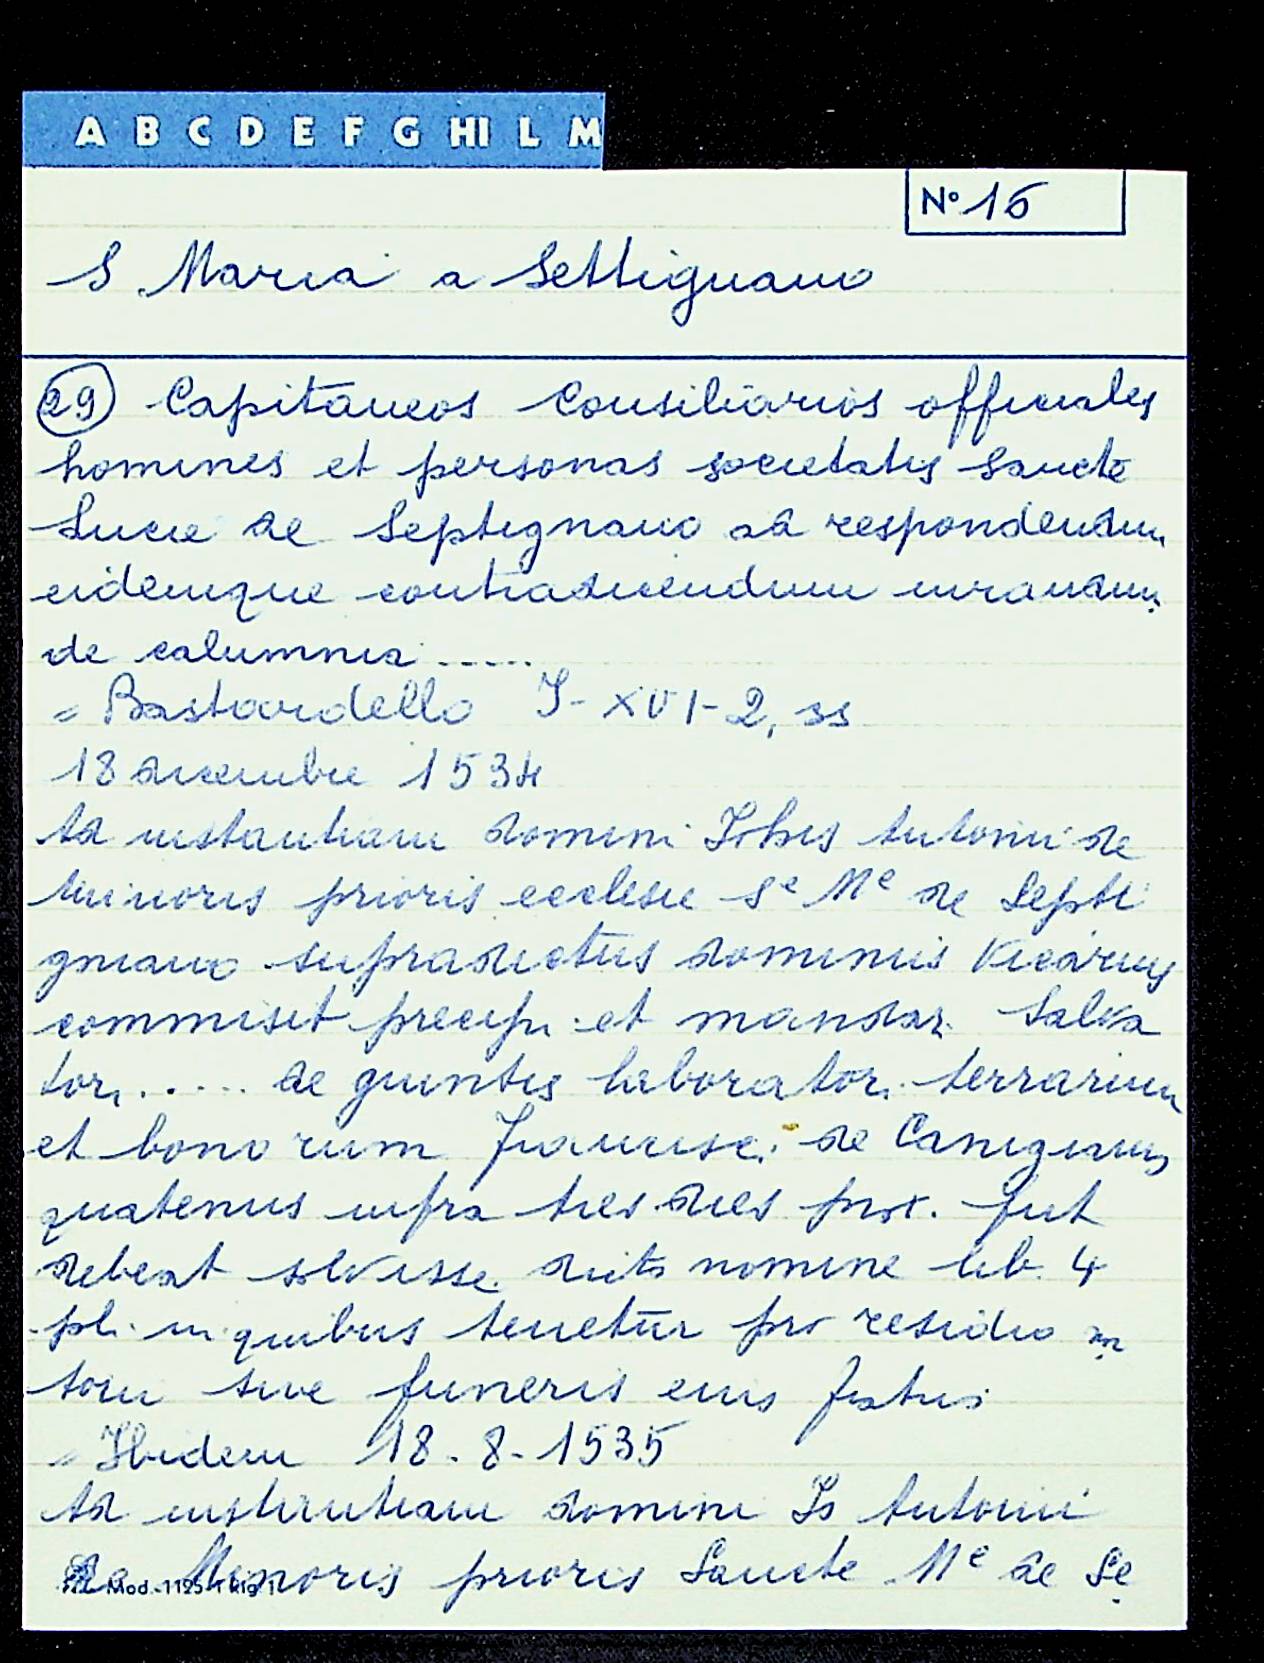 A B C D E F G HI L M
N° 16
S. Maria a Settignano
29 Capitaneos Consiliarios officiales
homines et personas societatis Sancte
Lucie de Septignano ad respondendum
eidemque contradicendum iurandum
de calumnia .....
= Bastardello I-XVI-2, ss
18 dicembre 1534
Ad instantiam domini Johis Antonii de
Minoris prioris ecclesie Se Me de Septi
gniano supradictus dominus Vicarius
commisit precepi et mandar. Salva
tori ..... de guintis laborator. terrarum
et bonorum Francisc. de Canigianis
quatenus infra tres dies prox. fut
debeat solvisse dicto nomine lib. 4
pl. in quibus tenetur pro residuo
sive funeris eius
= Ibidem 18-8-1535
Ad instantiam domini Jo Antonii
de Minoris prioris Sancte Me de Se
Mod. 1125